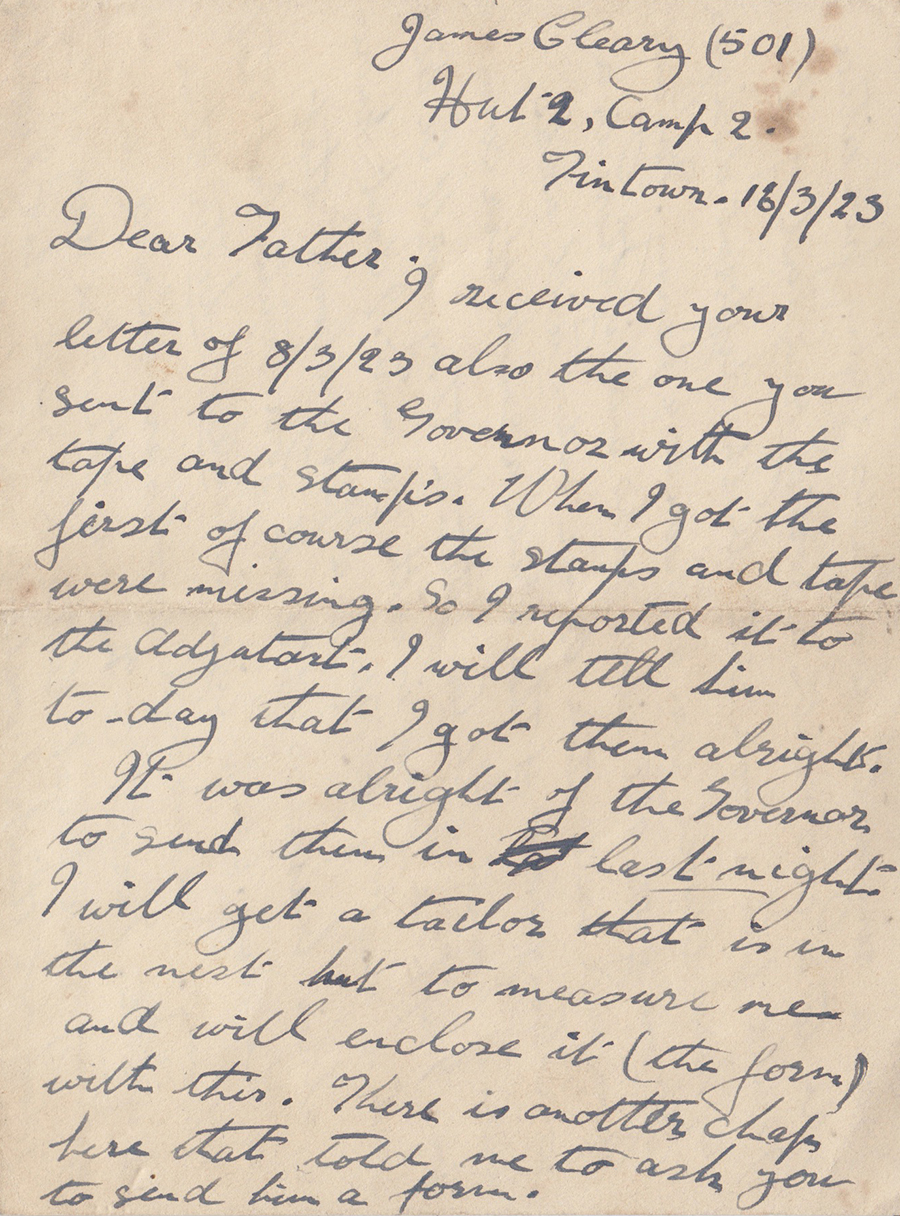 James Cleary (501)
Hut 2, Camp 2.
Tintown. 18/3/23
Dear Father.
I received your
letter of 8/3/23 also the one you
sent to the Governor with the
tape and stamps. When I got the
first of course the stamps and tape
were missing. So I reported it to
the Adjatart. I will tell him
to-day that I got them alright.
It was alright of the Governor
to send them in last night.
I will get a tailor that is in
the next hut to measure me
and will enclose it (the form)
with this. There is another chap
here that told me to ask you
to send him a form.